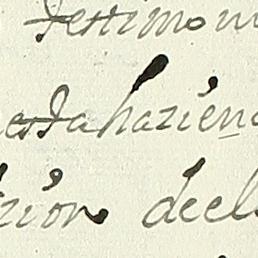 testimon
esta hazien
zion decl